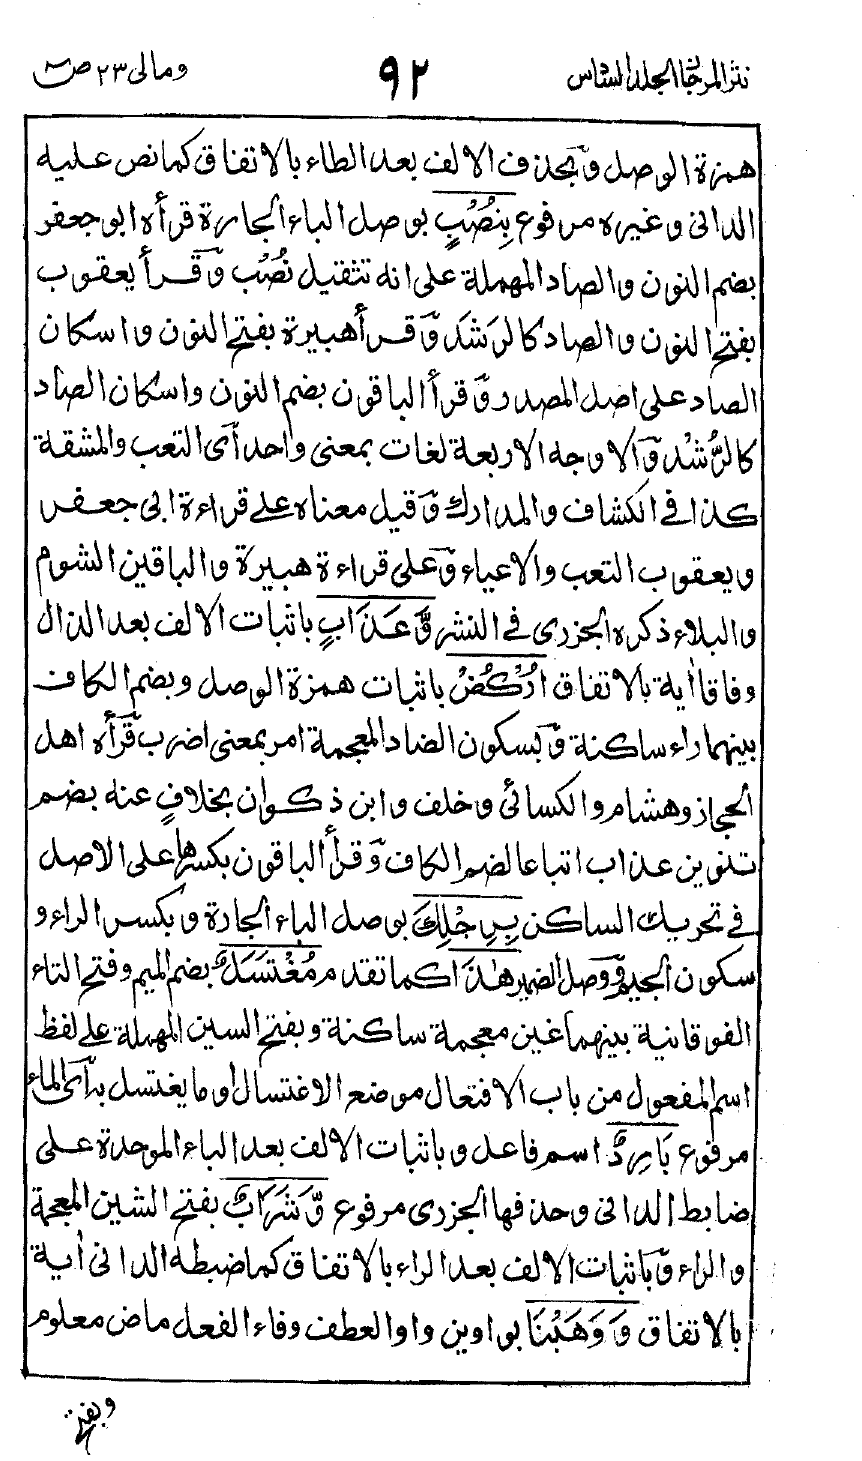 نثر المرجان الجلد السادس ٩٢ ومالی ٢٣ ص
همزة الوصل وبحذف الالف بعد الطاء بالاتفاق كما نص عليه
الدانی وغيره مرفوع بِنُصُبٍ بوصل الباء الجارة قرأه ابوجعفر
بضم النون والصاد المهملة على انه تثقيل نُصُب وقرأ يعقوب
بفتح النون والصاد كالرَشَد وقرأ هبيرة بفتح النون واسكان
الصاد على اصل المصدر وقرأ الباقون بضم النون واسكان الصاد
كالرُّشْد والاوجه الاربعة لغات بمعنى واحد أی التعب والمشقة
كذا فی الكشاف والمدارك وقيل معناه علی قراءة ابی جعفر
ويعقوب التعب والاعياء وعلى قراءة هبيرة والباقين الشوم
والبلاء ذكره الجزری فی النشر وَّعَذَابٍ باثبات الالف بعد الذال
وفاقا أية بالاتفاق اُرْكُضْ باثبات همزة الوصل وبضم الكاف
بينهما راء ساكنة وبسكون الضاد المعجمة امر بمعنى اضرب قرأه اهل
الحجاز وهشام والكسائی وخلف وابن ذكوان بخلافٍ عنه بضم
تنوين عذاب اتباعا لضم الكاف وقرأ الباقون بكسرها على الاصل
فی تحريك الساكن بِرِجْلِكَ بوصل الباء الجارة وبكسر الراء و
سكون الجيم ووصل الضمير هٰذَا كما تقدم مُغْتَسَلٌ بضم الميم وفتح التاء
الفوقانية بينهما غين معجمة ساكنة وبفتح السين المهملة علی لفظ
اسم المفعول من باب الافتعال موضع الاغتسال أو ما يغتسل به أی الماء
مرفوع بَارِدٌ اسم فاعل وباثبات الالف بعد الباء الموحدة على
ضابط الدانی وحذفها الجزری مرفوع وَّشَرَابٌ بفتح الشين المعجمة
والراء وباثبات الالف بعد الراء بالاتفاق كما ضبطه الدانی أية
بالاتفاق وَوَهَبْنَا بواوين واو العطف وفاء الفعل ماض معلوم
وبفتح